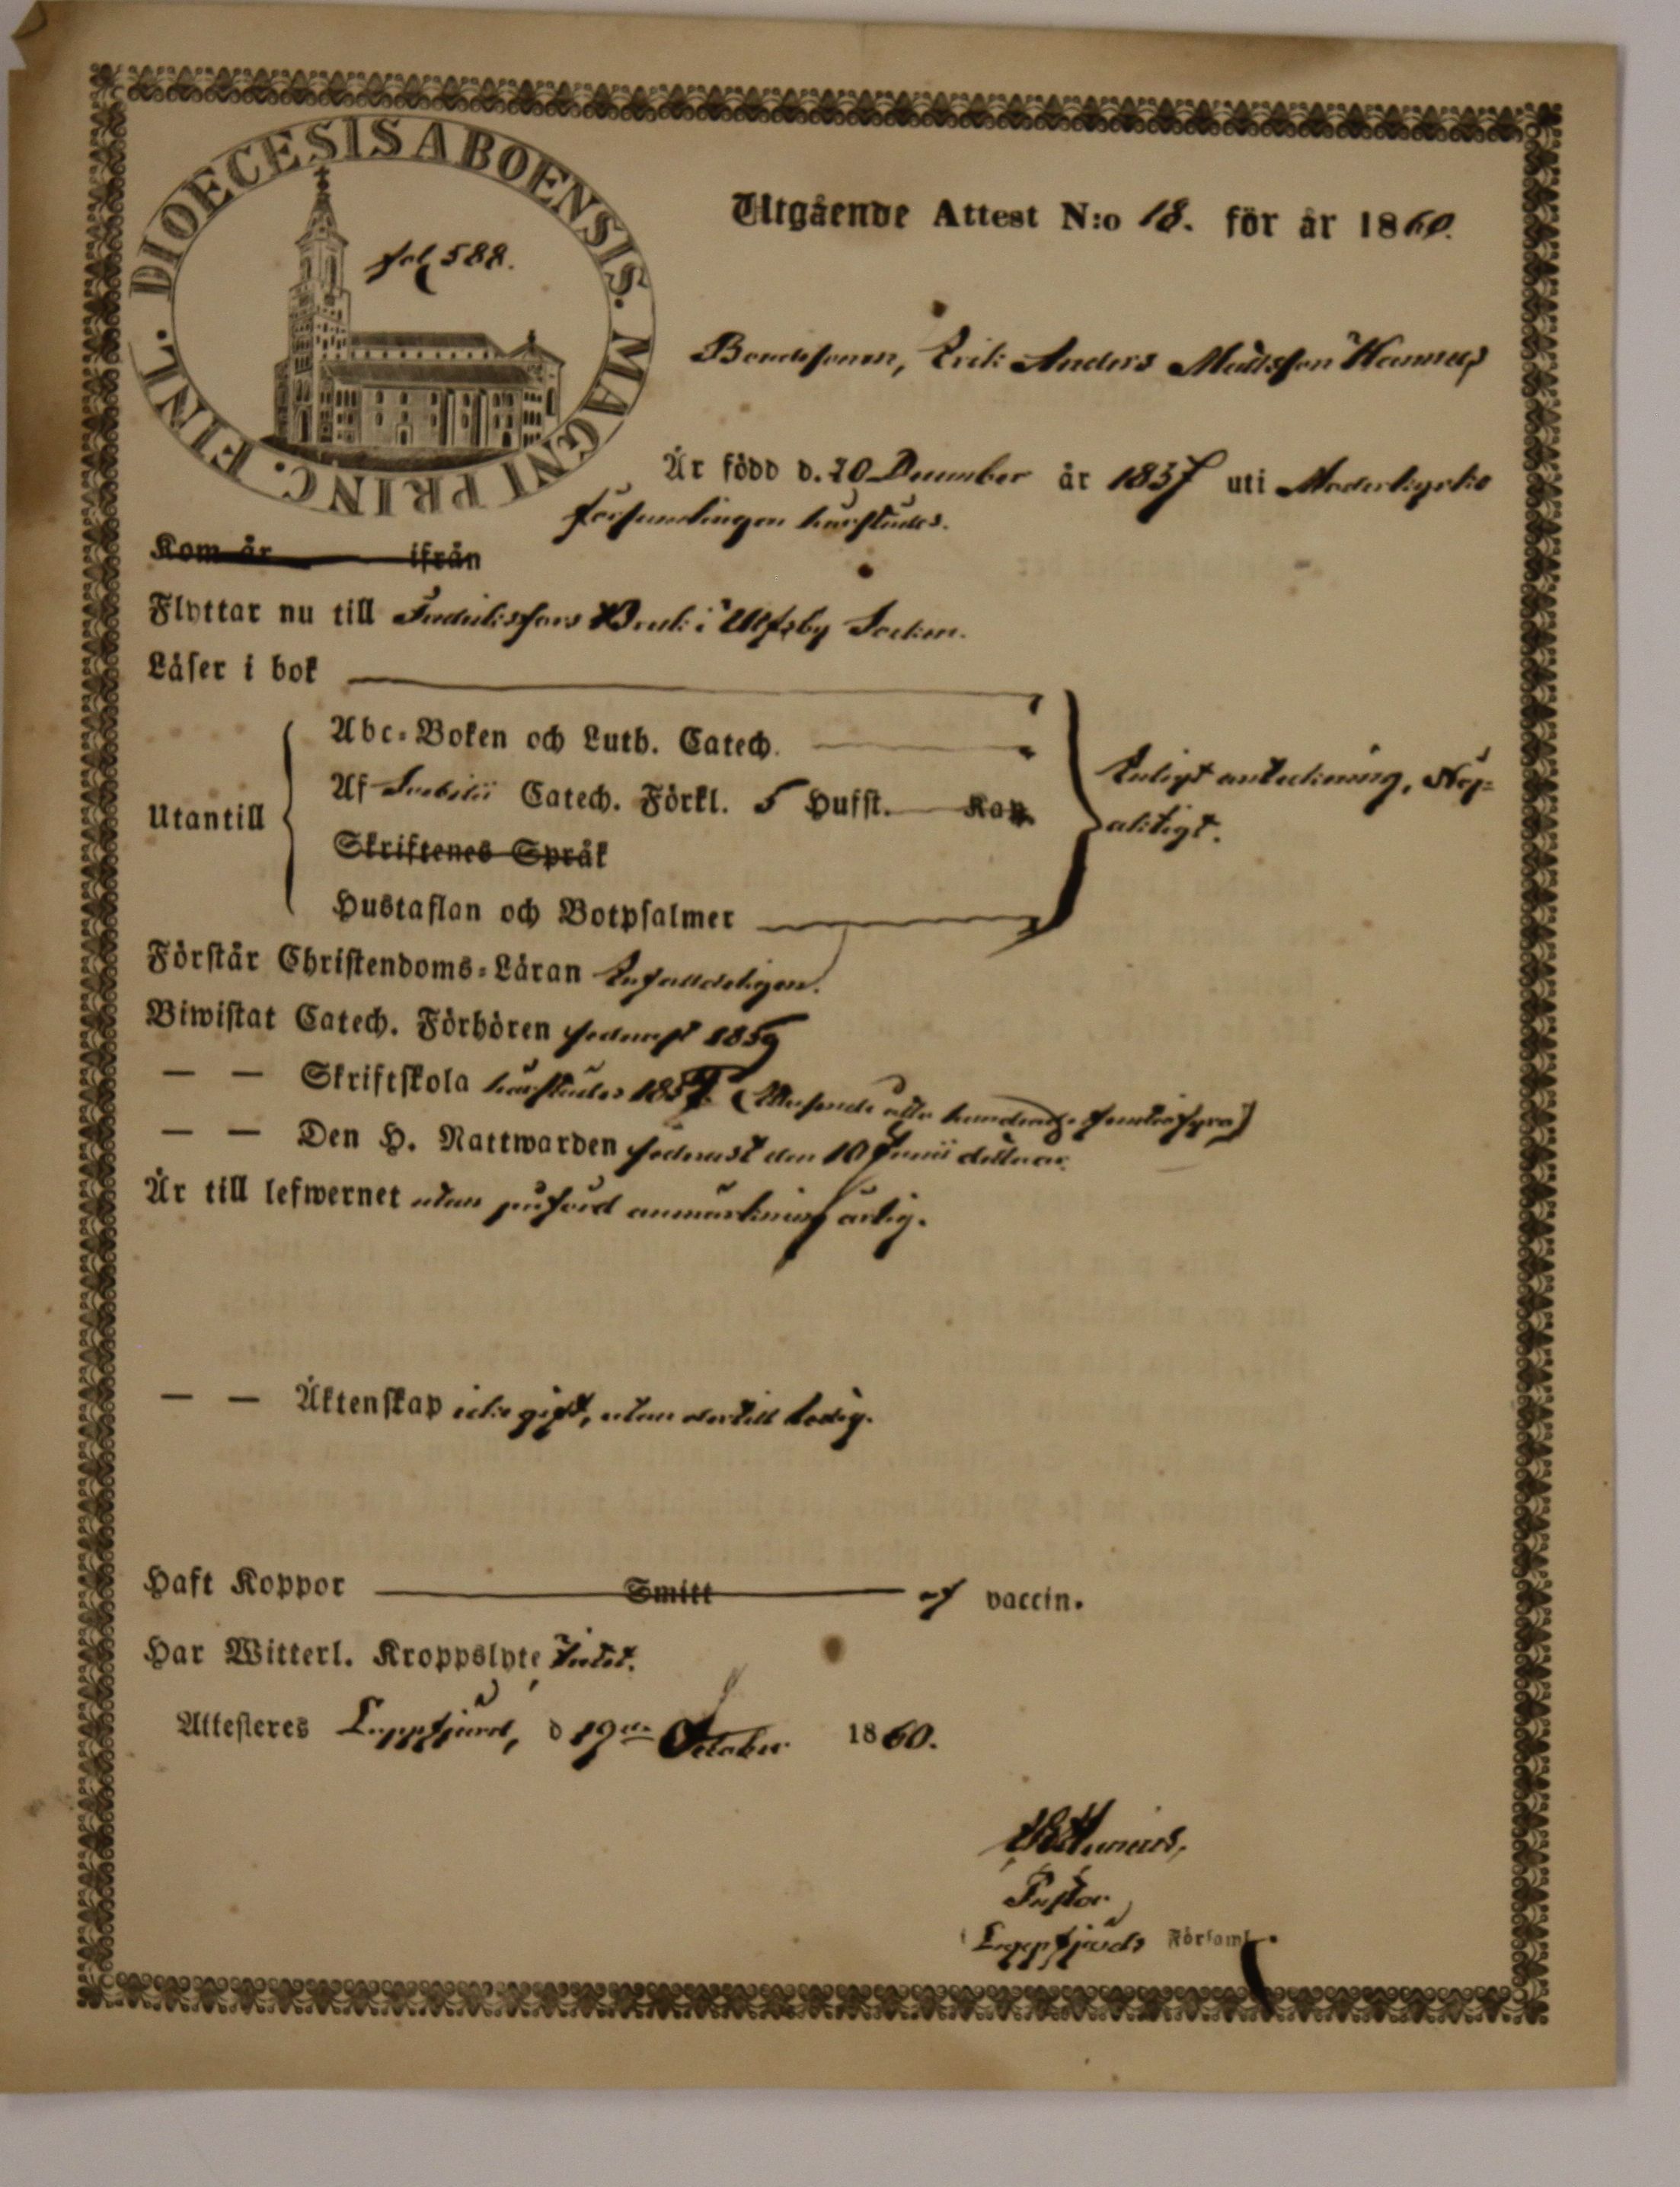 DIOECESIS ABOENSIS. MAGNI PRINC. FINL.
fol 588.
Utgående Attest N:o 18. för år 1860.
Bondesonen, Erik Anders Mattsson Hannus
Är född d. 20 December år 1837 uti Moderkyrko
församlingen härstädes.
Kom år ifrån
Flyttar nu till Fredriksfors Bruk i Ulfsby Socken.
Läser i bok
Abc-Boken och Luth. Catech.
Utantill
Af Svebilii Catech. Förkl. 5 Hufst. Kap.
Enligt anteckning, Nöj-
aktigt.
Skriftenes Språk
Hustaflan och Botpsalmer
Förstår Christendoms-Läran Enfaldeligen.
Biwistat Catech. Förhören sednast 1859
— — Skriftskola härstädes 1854. (Ettusende åtta hundrade femtiofyra)
— — Den H. Nattwarden sednast den 10 Junii detta år.
Är till lefwernet utan påförd anmärkning ärlig.
— — Äktenskap icke gift, utan dertill ledig.
Haft Koppor Smitt af vaccin.
Har Witterl. Kroppslyte Intet.
Attesteres Lappfjärd, d 19de October 1860.
Pastor
Lappfjärds Församl.